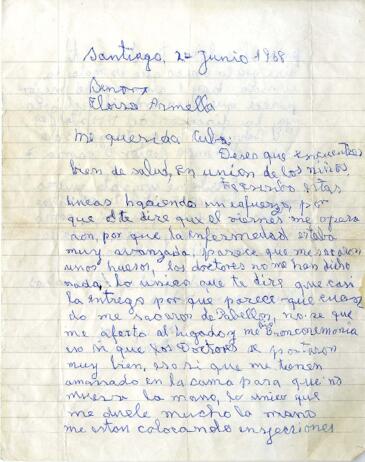 Santiago, 2 Junio 1968
Señora
Eloisa Armella
Mi querida
Deseo que te encuentres
bien de salud, en union de los niños
estas
lineas haciendo un esfuerzo, por
que te dire que el viernes me opera
ron, por que la enfermedad estaba
muy avanzada, parece que me sacaron
unos huesos, los doctores no me han dicho
nada, lo unico que te dire que casi
la entrego por que parece que cuan
do me sacaron de Pabellon, no se que
me afecto al higado y me Bronconeumonia
eso si que los Doctores se portaron
muy bien, eso si que me tienen
amarrado en la cama para que no
mueva la mano, lo unico que
me duele mucho la mano
me estan colocando inyecciones